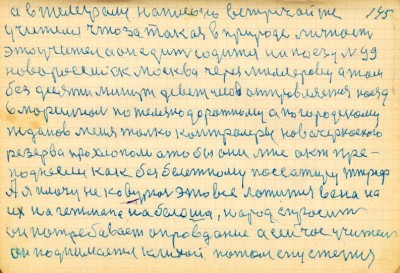 а в телеграму написань встречайте 145
учителя что за такая в природе личность
это учитель а он едит садится на поезд N 99
новоросейск москва через милерову а там
без десяти минут девет часов отправляется поезд
в морщинск по железнодорожному а по городскому
жданов меня толко контролеры новочеркаского
резерва прохлопом а то бы они мне акт пре-
поднесли как без белетному посажиру штраф
А я плачу не ково это все ложится вена на
их начетмена на балоша, народ спросит
он потребавает оправдание а сейчас учитель
он поднимается клихой потом спустемя